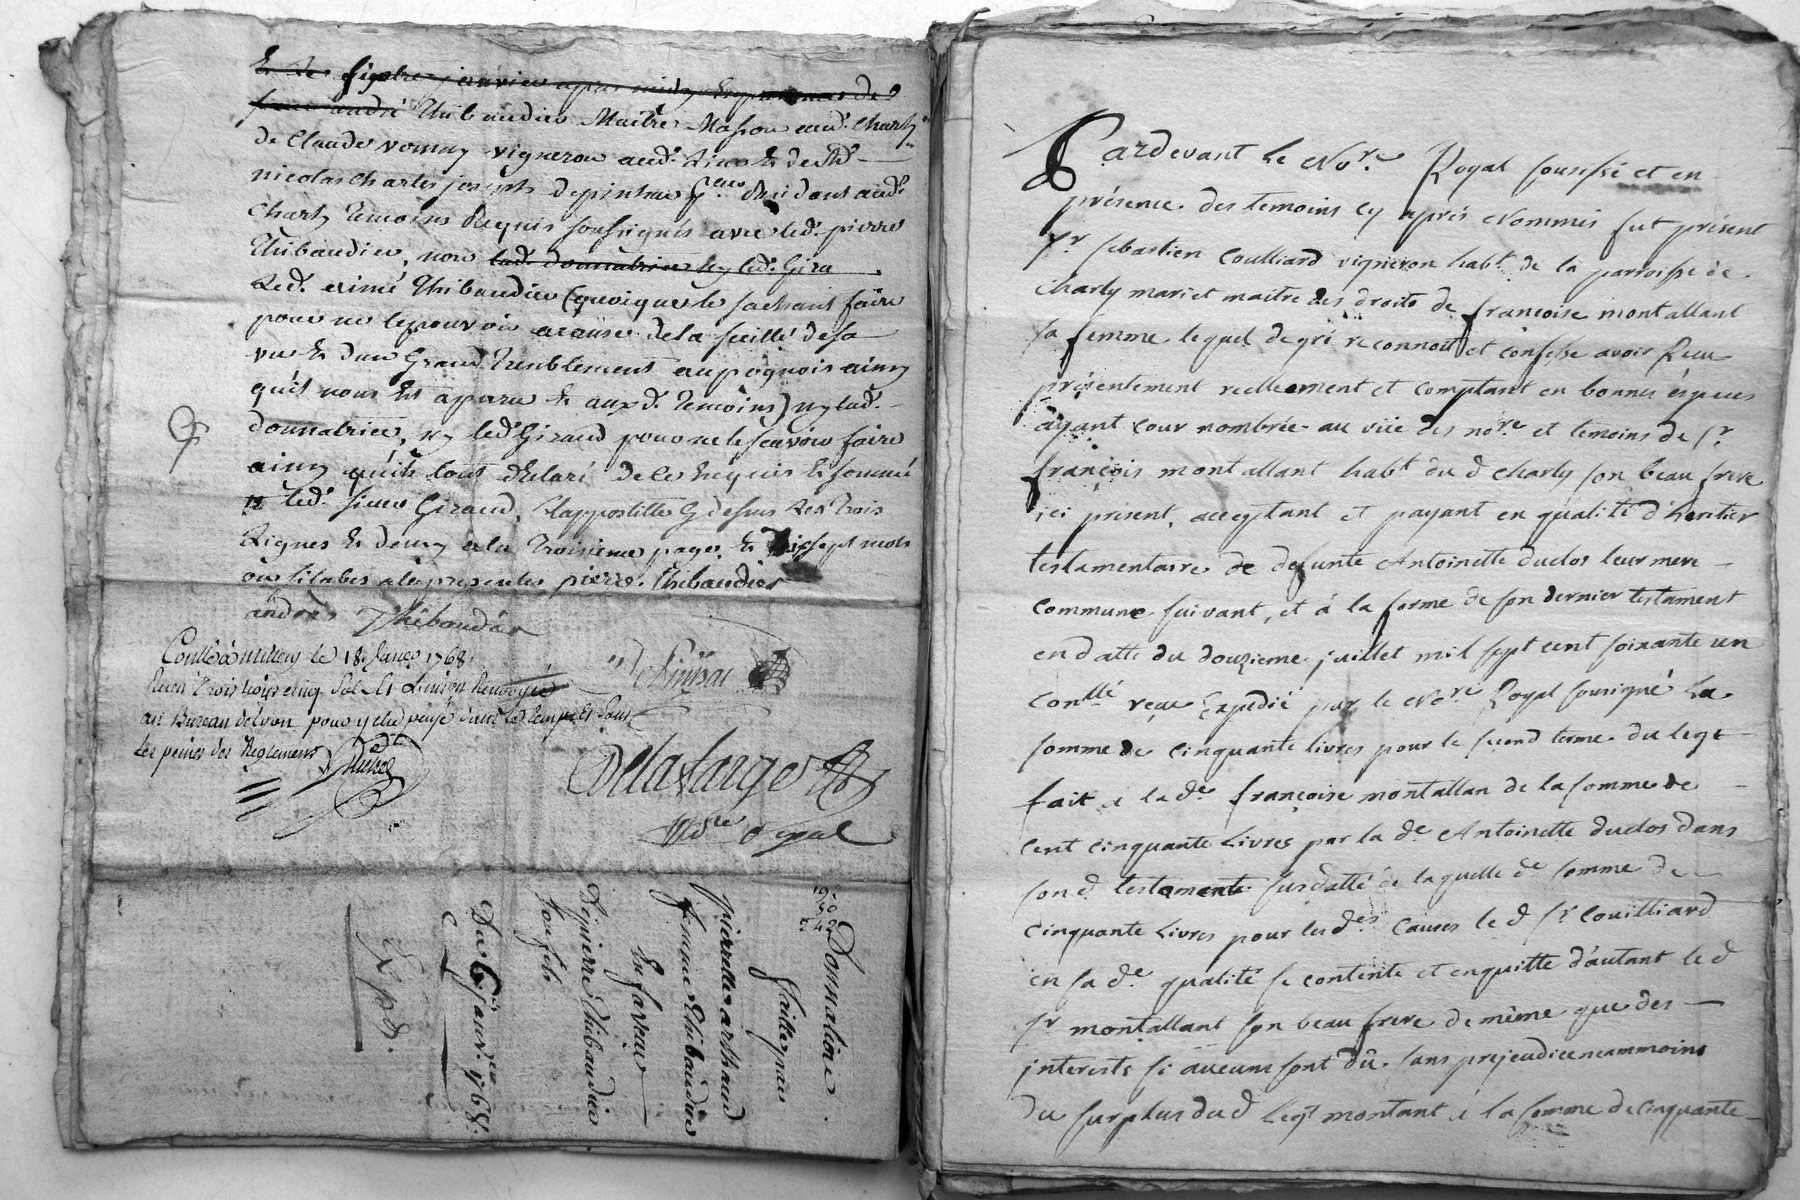 Thibaudier Maitre Masson aud. Charly
de Claude vigneron aud. lieu & de Sr.
nicolas Charles joseph depinhac aud.
Charly temoins Requis soussignés avec led. pierre
Thibaudier, non lad. donnatrice ny led. Giraud
led. aimé Thibaudier (quoique le sachant faire
pour ne le pouvoir acause de la de sa
vue & d'un Grand tremblement au poignois ainsy
qu'il nous est aparu & auxd. temoins) ny lad.
donnatrice, ny led. Giraud pour ne le scavoir faire
ainsy qu'ils l'ont déclaré de ce enquis & sommé
led. sieur Giraud, l'appostille cy dessus les trois
lignes & demy à la troisieme page, & dixsept mots
ou silabes pierre. thibaudier
andré Thibaudier
Conllé à millery le 18. Janer 1768.
Recu trois livres cinq sols Renvoyé
au Bureau de Lyon pour y etre payé dans le temps et sous
les peines des Reglements Michel
Delafarge
No.re Royal
Donnation
faitte par
pierrette arthaud
femme thibaudier
En faveur
De pierre thibaudier
son fils
Du 6 janv. 1768.
Exp.d.
Pardevant le No.re Royal soussigé et en
présence des temoins cy après Nommés fut présent
Sr sebastien Coulliard vigneron habt de la parroisse de
charly mari et maitre des droits de françoise montallant
sa femme lequel de gré reconnoit et confesse avoir Reçu
présentement reellement et comptant en bonnes éspeces
ayant cour nombrée au vüe des no.re et temoins de Sr
françois montallant habt du d Charly son beau frere
ici présent, acceptant et payant en qualité d'heritier
testamentaire de defunte Antoinette duclos leur mere
commune suivant, et á la forme de son dernier testament
en datte du douzieme juillet mil sept cent soixante un
conllé reçu Expedié par le No.re Royal sousigné la
somme de cinquante livres pour le second terme du legt
fait à la de françoise montallan de la somme de
cent cinquante Livres par la de Antoinette duclos dans
son d testament susdatté de laquelle de somme de
cinquante Livres pour les des causes le d Sr Couilliard
en sa de qualité se contente et en quitte d'autant le d
Sr montallant son beau frere de même que des
interests si aucuns sont dû. sans prejeudice neammoins
du surplus dud Legt montant à la somme de cinquante